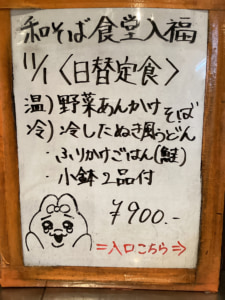 和そば食堂入福
11/1〈日替定食〉
温)野菜あんかけそば
冷)冷したぬき風うどん
・ふりかけごはん(鮭)
・小鉢2品付
¥900.-
=入口こちら⇒